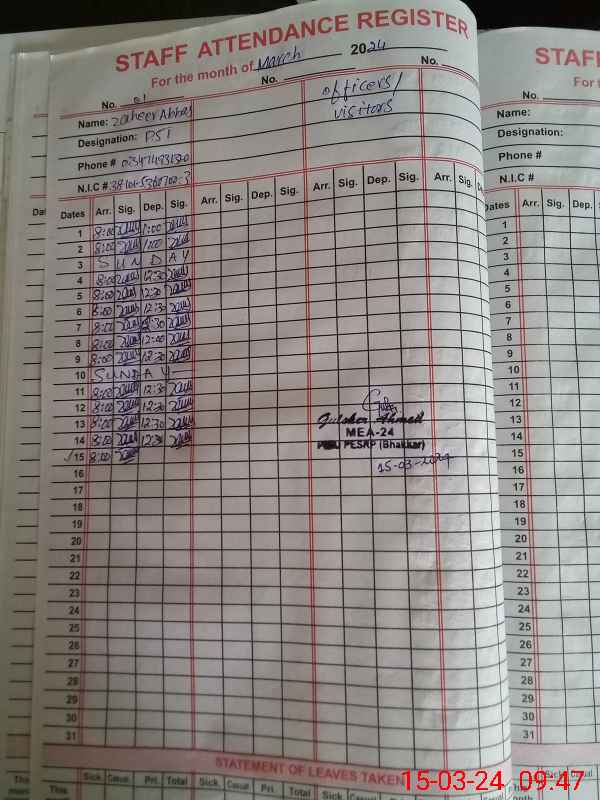 STAFF ATTENDANCE REGISTER
For the month of March 2024
No. 01 No. No.
Name: Zaheer Abbas officers/
Designation: PST visitors
Phone #
N.I.C #
Dates Arr. Sig. Dep. Sig. Arr. Sig. Dep. Sig. Arr. Sig. Dep. Sig. Arr. Sig.
1 8:00 1:00
2 8:00 1:00
3 SUNDAY
4 8:00 12:30
5 8:00 12:30
6 8:00 12:30
7 8:00 12:30
8 8:00 12:00
9 8:00 12:30
10 SUNDAY
11 8:00 12:30
12 8:00 12:30
13 8:00 12:30
14 8:00 12:30
15 8:00
16
17
18
19
20
21
22
23
24
25
26
27
28
29
30
31
Gulsher Ahmad
MEA-24
PESRP (Bhakkar)
15-03-2024
STATEMENT OF LEAVES TAKEN
This Sick. Casual. Pri. Total Sick. Casual. Pri. Total Sick. Casual
STAFF
For t
No.
Name:
Designation:
Phone #
N.I.C #
Dates Arr. Sig. Dep.
1
2
3
4
5
6
7
8
9
10
11
12
13
14
15
16
17
18
19
20
21
22
23
24
25
26
27
28
29
30
31
15-03-24 09:47